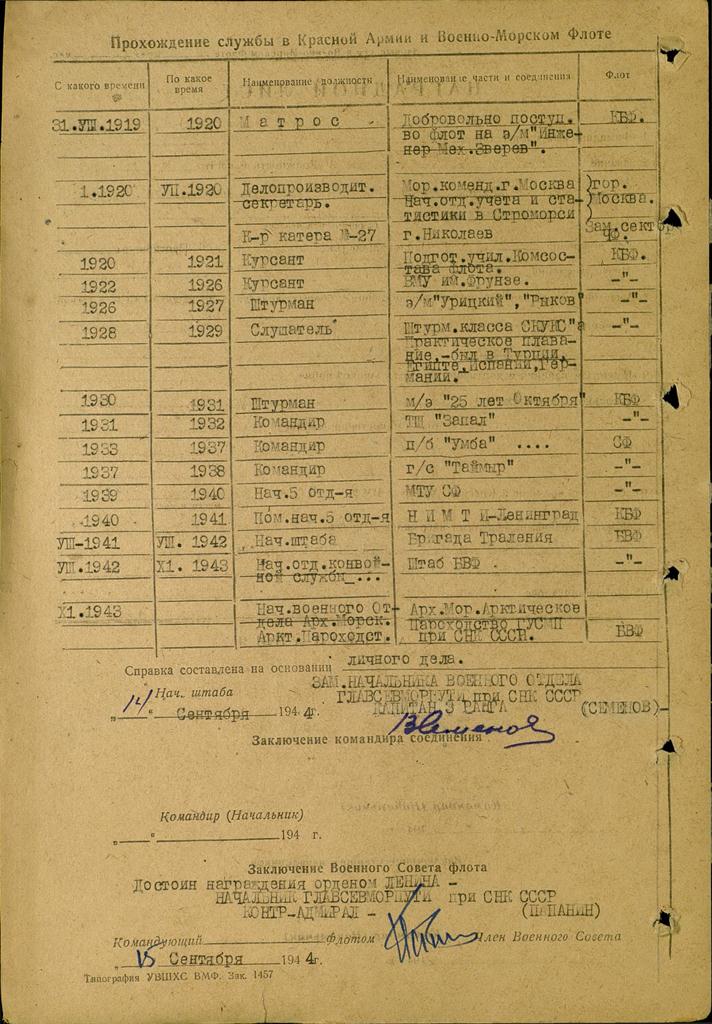 Прохождение службы в Красной Армии и Военно-Морском Флоте
С какого времени | По какое время | Наименование должности | Наименование части и соединения | Флот
31.VIII.1919 | 1920 | Матрос | Добровольно поступ. | КБФ.
во флот на э/м "Инже-
нер Мех.Зверев".
1.1920 | VII.1920 | Делопроизводит. | Мор.коменд.г.Москва | )гор.
секретарь. | Нач.отд.учета и ста- | )Москва.
тистики в Строморси | Зам.сект
К-р катера №-27 | г.Николаев | ЧФ.
1920 | 1921 | Курсант | Подгот.учил.Комсос- | КБФ.
тава флота.
1922 | 1926 | Курсант | ВМУ им.Фрунзе. | -"-
1926 | 1927 | Штурман | э/м"Урицкий","Рыков" | -"-
1928 | 1929 | Слушатель | Штурм.класса СКУКС" | -"-
Практическое плава-
ние,-был в Турции,
Египте,Испании,Гер-
мании.
1930 | 1931 | Штурман | м/э "25 лет Октября" | КБФ
1931 | 1932 | Командир | ТЩ "Запал" | -"-
1933 | 1937 | Командир | п/б "Умба" .... | СФ
1937 | 1938 | Командир | г/с "Таймыр" | -"-
1939 | 1940 | Нач.5 отд-я | МТУ СФ | -"-
1940 | 1941 | Пом.нач.5 отд-я | НИМТИ-Ленинград | КБФ
VIII-1941 | VIII. 1942 | Нач.штаба | Бригада Траления | БВФ
VIII.1942 | XI. 1943 | Нач.отд.конвой- | Штаб БВФ . | -"-
ной службы ...
XI.1943 | Нач.военного От- | Арх.Мор.Арктическое
дела Арх.Морск. | Пароходство ГУСМП
Аркт.Пароходст. | при СНК СССР. | БВФ
Справка составлена на основании личного дела.
Нач. штаба ЗАМ.НАЧАЛЬНИКА ВОЕННОГО ОТДЕЛА
ГЛАВСЕВМОРПУТИ при СНК СССР
„14" Сентября 1944г. КАПИТАН 3 РАНГА (СЕМЕНОВ)-
ВСеменов
Заключение командира соединения
Командир (Начальник)
„ " 194 г.
Заключение Военного Совета флота
Достоин награждения орденом ЛЕНИНА -
НАЧАЛЬНИК ГЛАВСЕВМОРПУТИ при СНК СССР
КОНТР-АДМИРАЛ - (ПАПАНИН)
Командующий Флотом Член Военного Совета
„15 Сентября 1944г.
Типография УВШХС ВМФ. Зак. 1457